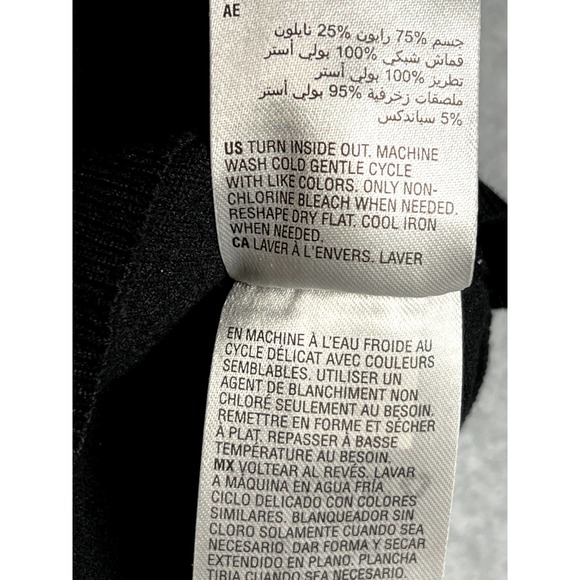 AE
جسم 75% رايون 25% نايلون
قماش شبكي 100% بولي أستر
تطريز 100% بولي أستر
ملصقات زخرفية 95% بولي أستر
5% سباندكس
US TURN INSIDE OUT. MACHINE
WASH COLD GENTLE CYCLE
WITH LIKE COLORS. ONLY NON-
CHLORINE BLEACH WHEN NEEDED.
RESHAPE DRY FLAT. COOL IRON
WHEN NEEDED.
CA LAVER À L'ENVERS. LAVER
EN MACHINE À L'EAU FROIDE AU
CYCLE DÉLICAT AVEC COULEURS
SEMBLABLES. UTILISER UN
AGENT DE BLANCHIMENT NON
CHLORÉ SEULEMENT AU BESOIN.
REMETTRE EN FORME ET SÉCHER
À PLAT. REPASSER À BASSE
TEMPÉRATURE AU BESOIN.
MX VOLTEAR AL REVÉS. LAVAR
A MÁQUINA EN AGUA FRÍA
CICLO DELICADO CON COLORES
SIMILARES. BLANQUEADOR SIN
CLORO SOLAMENTE CUANDO SEA
NECESARIO. DAR FORMA Y SECAR
EXTENDIDO EN PLANO. PLANCHA
TIBIA CUANDO SEA NECESARIO.